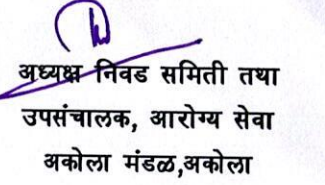 अध्यक्ष निवड समिती तथा
उपसंचालक, आरोग्य सेवा
अकोला मंडळ,अकोला